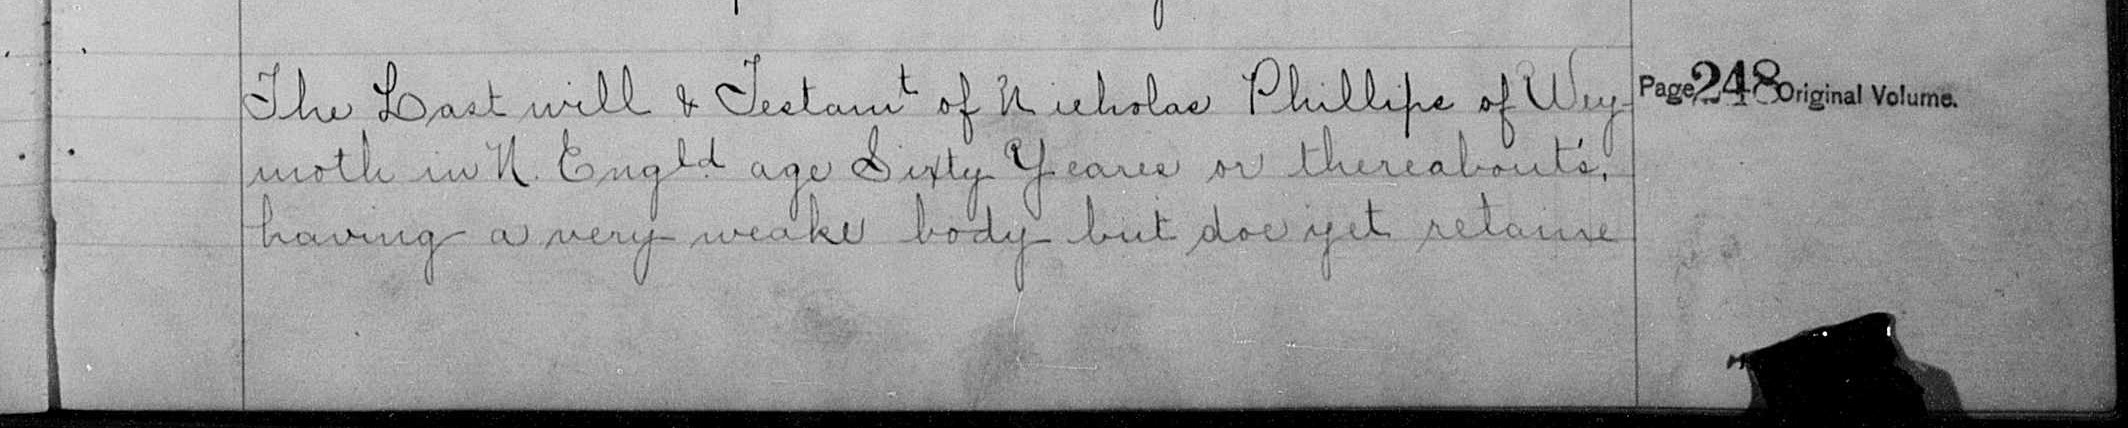 The Last will & Testamt of Nicholas Phillips of Wey-
moth in N. Engld age Sixty Yeares or thereabouts,
having a very weake body but doe yet retaine
Page 248 Original Volume.